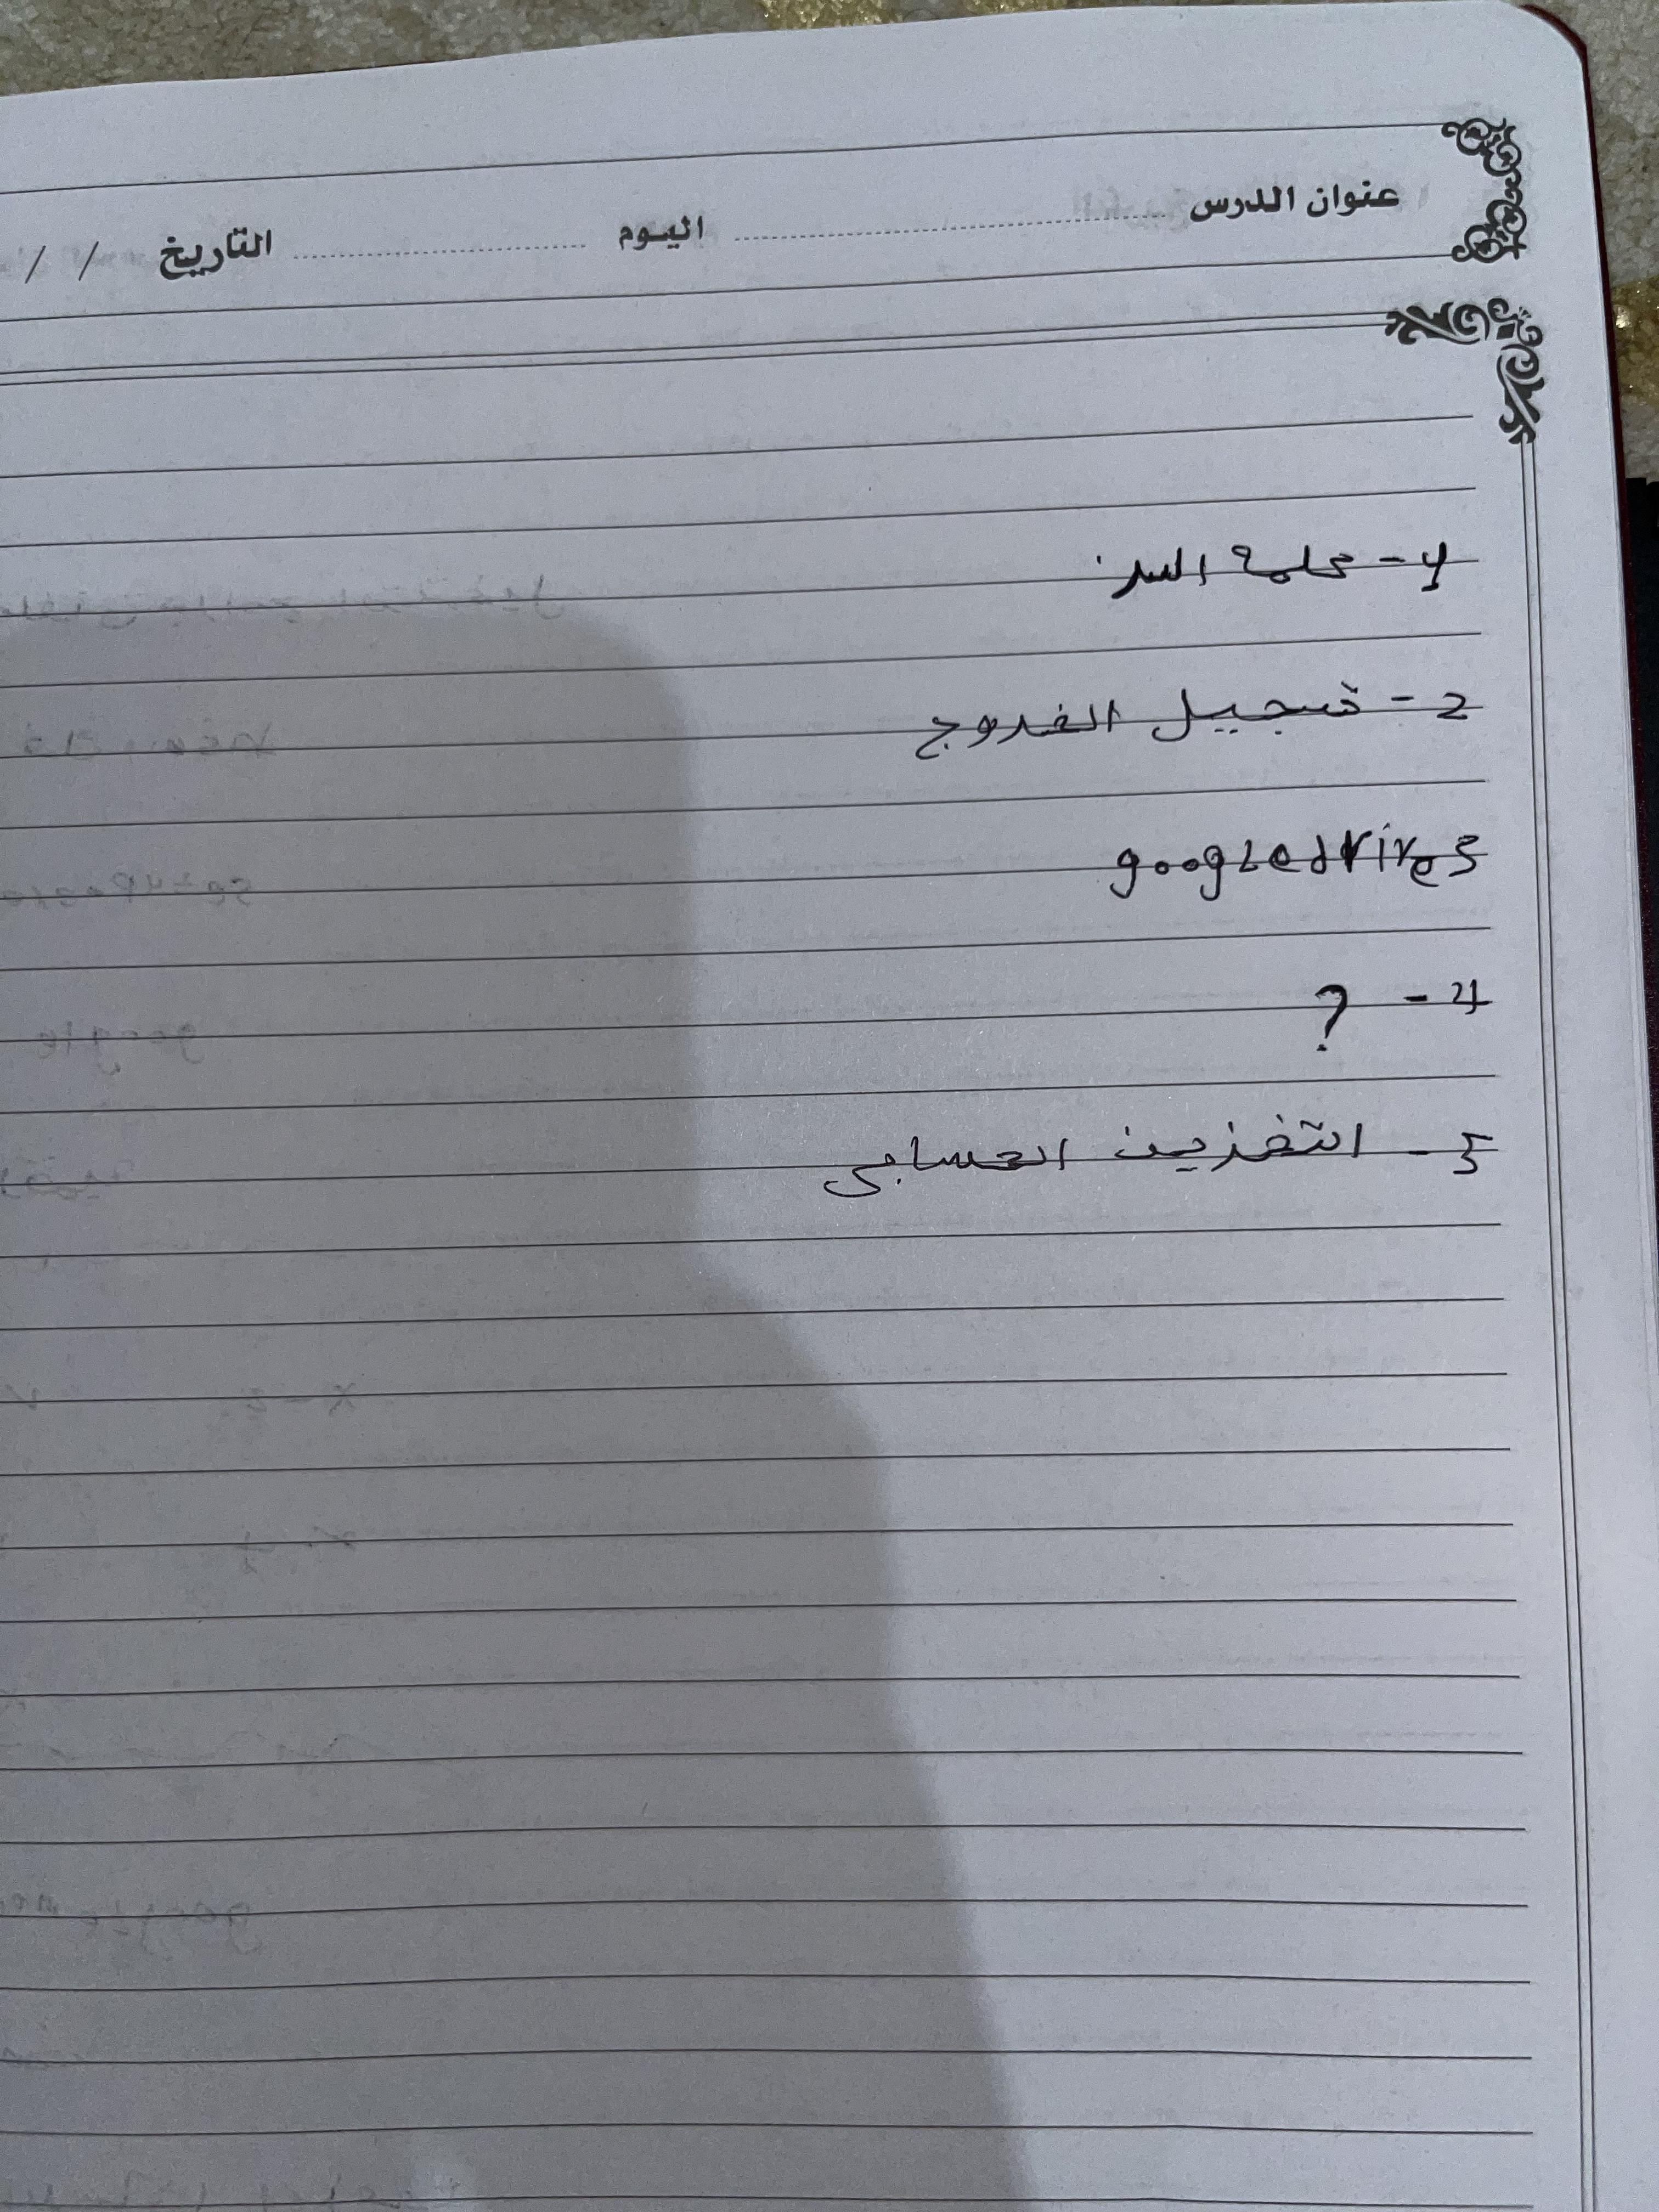 عنوان الدرس ........................ اليوم ........................ التاريخ / /
1- كلمة السر
2- تسجيل الخروج
google drive 3
4- ?
5- التخزين الحسابي